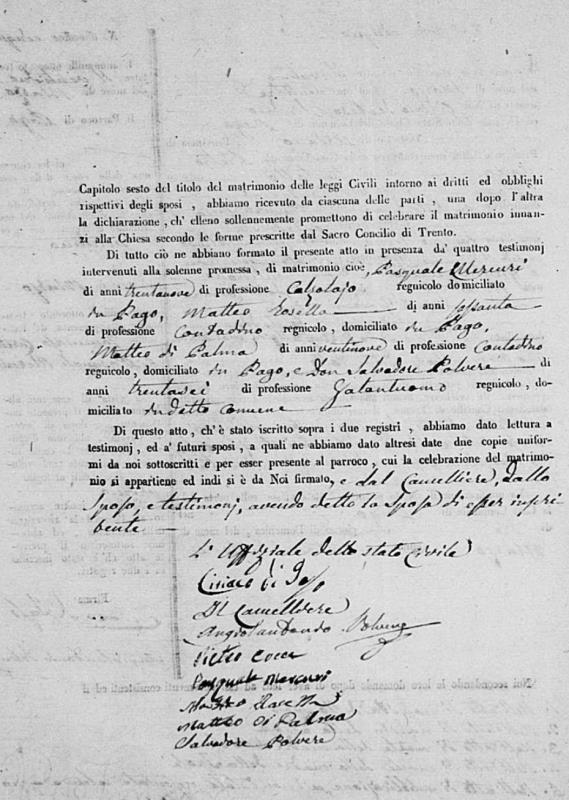 Capitolo sesto del titolo del matrimonio delle leggi Civili intorno ai dritti ed obblighi
rispettivi degli sposi , abbiamo ricevuto da ciascuna delle parti , una dopo l'altra
la dichiarazione , ch' elleno sollennemente promettono di celebrare il matrimonio innan-
zi alla Chiesa secondo le forme prescritte dal Sacro Concilio di Trento.
Di tutto ciò ne abbiamo formato il presente atto in presenza da' quattro testimonj
intervenuti alla solenne promessa , di matrimonio cioè, Pasquale Mercuri
di anni trentanove di professione Calzolajo regnicolo domiciliato
in Pago, Matteo Rosella di anni sessanta
di professione Contadino regnicolo , domiciliato in Pago,
Matteo di Palma di anni ventinove di professione Contadino
regnicolo, domiciliato in Pago, e Don Salvadore Polvere di
anni trentasei di professione Galantuomo regnicolo , do-
miciliato in detto Comune
Di questo atto, ch'è stato iscritto sopra i due registri , abbiamo dato lettura a
testimonj , ed a' futuri sposi , a quali ne abbiamo dato altresì date dne copie unifor-
mi da noi sottoscritti e per esser presente al parroco, cui la celebrazione del matrimo-
nio si appartiene ed indi si è da Noi firmato, e dal Cancelliere, dallo
Sposo, e testimonj, avendo detto la Sposa di esser inscri
bente.
L' Uffiziale dello stato Civile
Il Cancelliere
Polvere
Pasquale Mercuri
Matteo di Palma
Salvadore Polvere